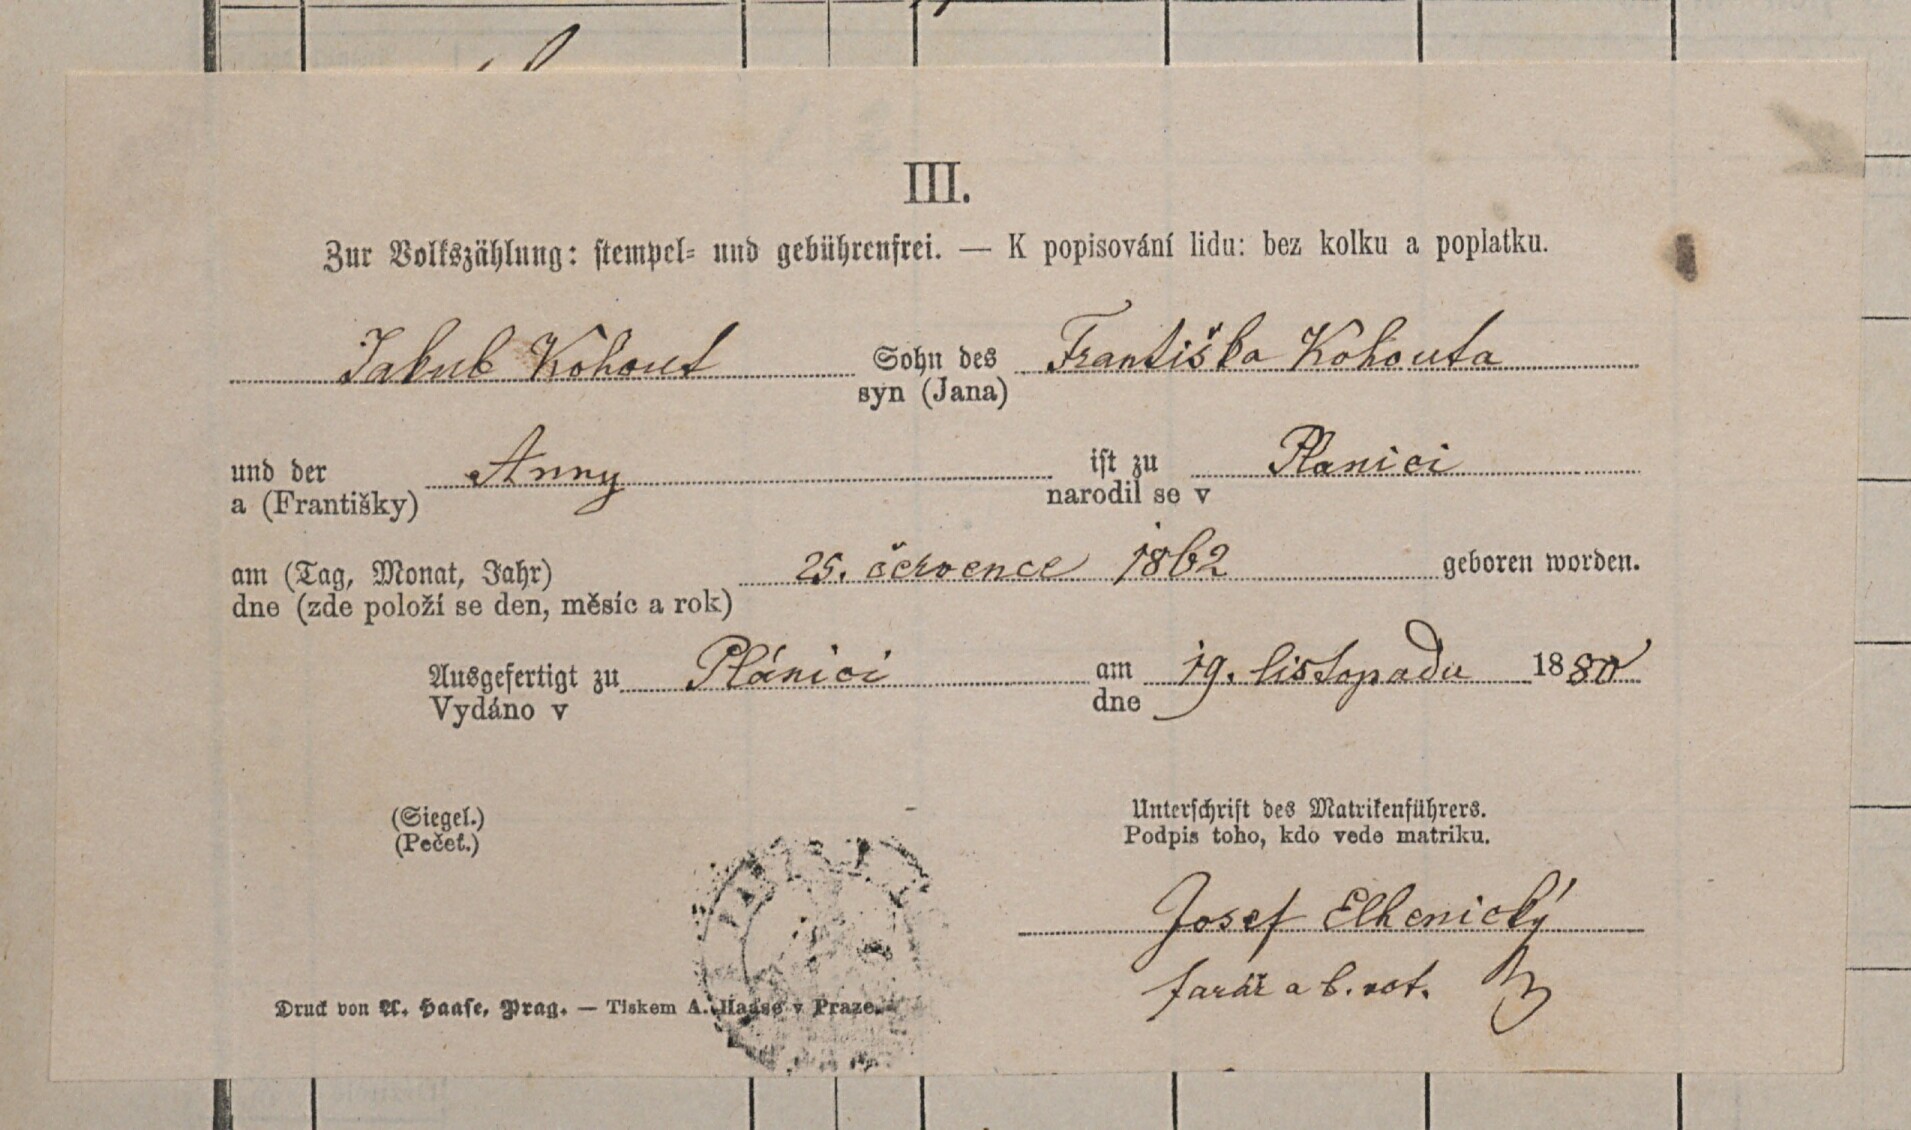 III.
Zur Volkszählung: stempel- und gebührenfrei. — K popisování lidu: bez kolku a poplatku.
Jakub Kohout Sohn des Františka Kohouta
syn (Jana)
und der Anny ist zu Planici
a (Františky) narodil se v
am (Tag, Monat, Jahr) 25. července 1862 geboren worden.
dne (zde položí se den, měsíc a rok)
Ausgefertigt zu Plánici am 19. listopadu 1880
Vydáno v dne
(Siegel.) Unterschrift des Matrikenführers.
(Pečeť.) Podpis toho, kdo vede matriku.
Josef Elhenický
farář a b. not.
Druck von A. Haase, Prag. — Tiskem A. Haase v Praze.